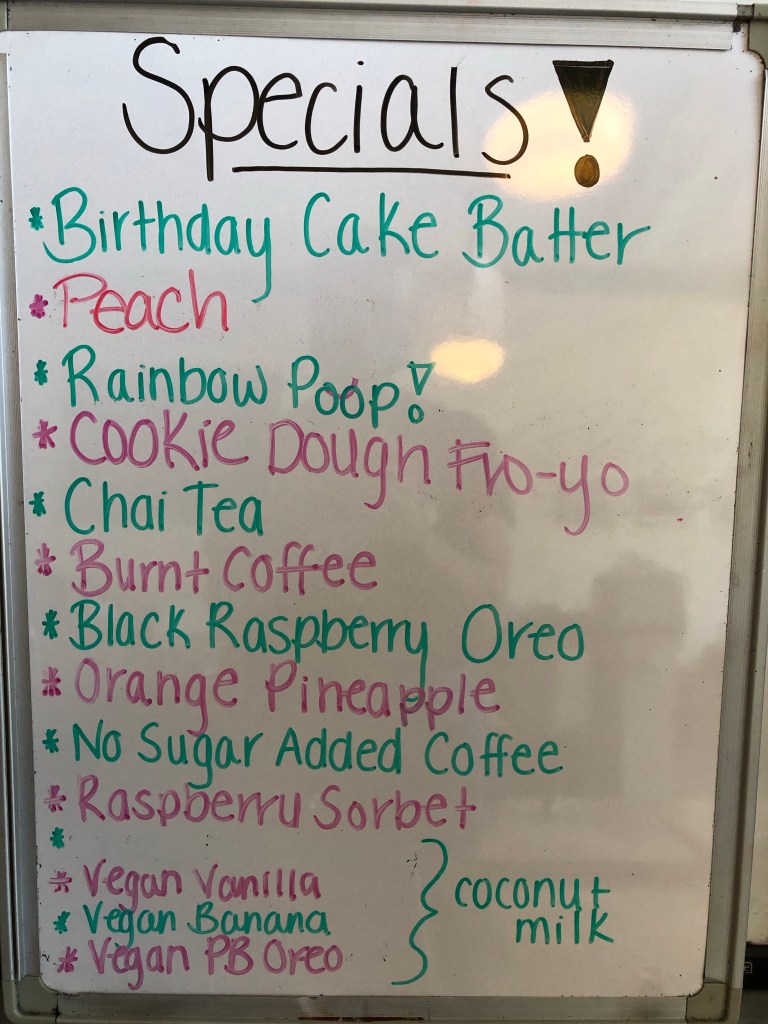 Specials!
* Birthday Cake Batter
* Peach
* Rainbow Poop!
* Cookie Dough Fro-yo
* Chai Tea
* Burnt Coffee
* Black Raspberry Oreo
* Orange Pineapple
* No Sugar Added Coffee
* Raspberry Sorbet
*
* Vegan Vanilla
* Vegan Banana
* Vegan PB Oreo
} coconut
milk